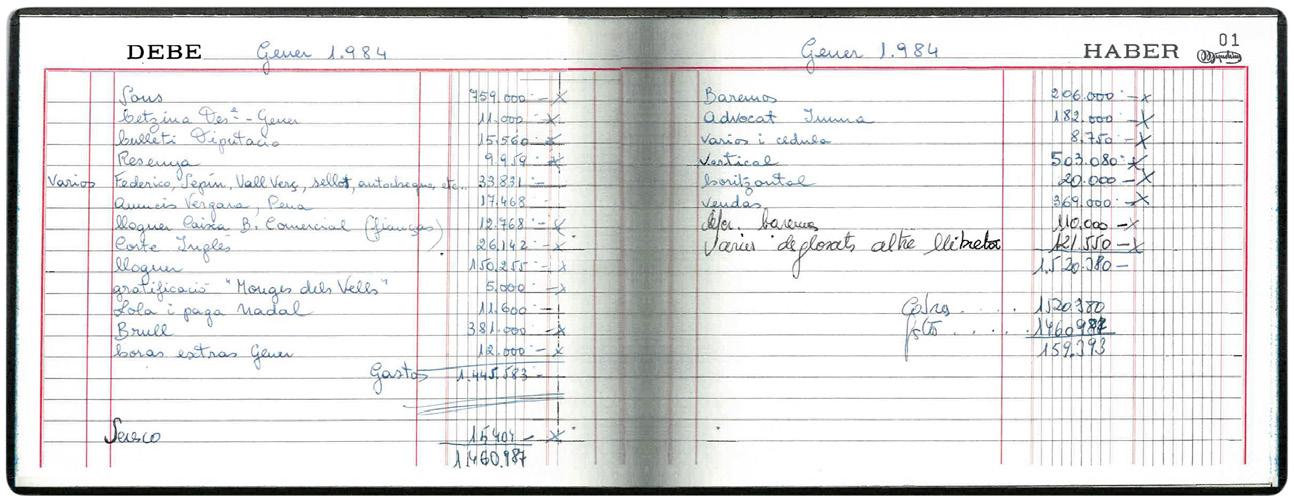 DEBE Gener 1.984
Sous 759.000.- x
betzina Des.ª - Gener 11.000.- x
bulleti Diputacio 15.560.- x
Resenya 9.959.- x
Varios Federico, Pepin, Vall Verç, sellot, autocheque, etc.. 33.831.-
Anuncis Vergara, Pena 17.468.-
lloguer Caixa B. Comercial (fiança) 12.768.- x
Corte Ingles 26.142.- x
lloguer 150.255.- x
gratificació "Monges dels Vells" 5.000.- x
Lola i paga Nadal 11.600.-
Brull 381.000.- x
horas extras Gener 12.000.- x
Gastos 1.445.583.-
Seresco 15404.- x
1.460.987
Gener 1.984 HABER 01
Baremos 206.000.- x
Advocat Imma 182.000.- x
Varios i cedula 8.750.- x
Vertical 503.080.- x
horitzontal 20.000.- x
Vendas 369.000.- x
baremos 110.000.- x
Varius desglosats altre llibreta 121.550.- x
1.520.380.-
Cobros .... 1520.380
.... 1460987
159.393